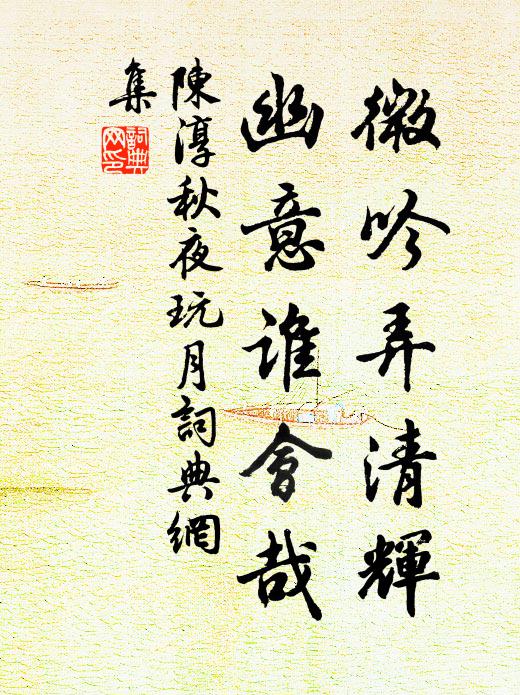 微吟弄清輝
幽意誰會哉
陳淳秋夜玩月詞典網
集
詞典
网印